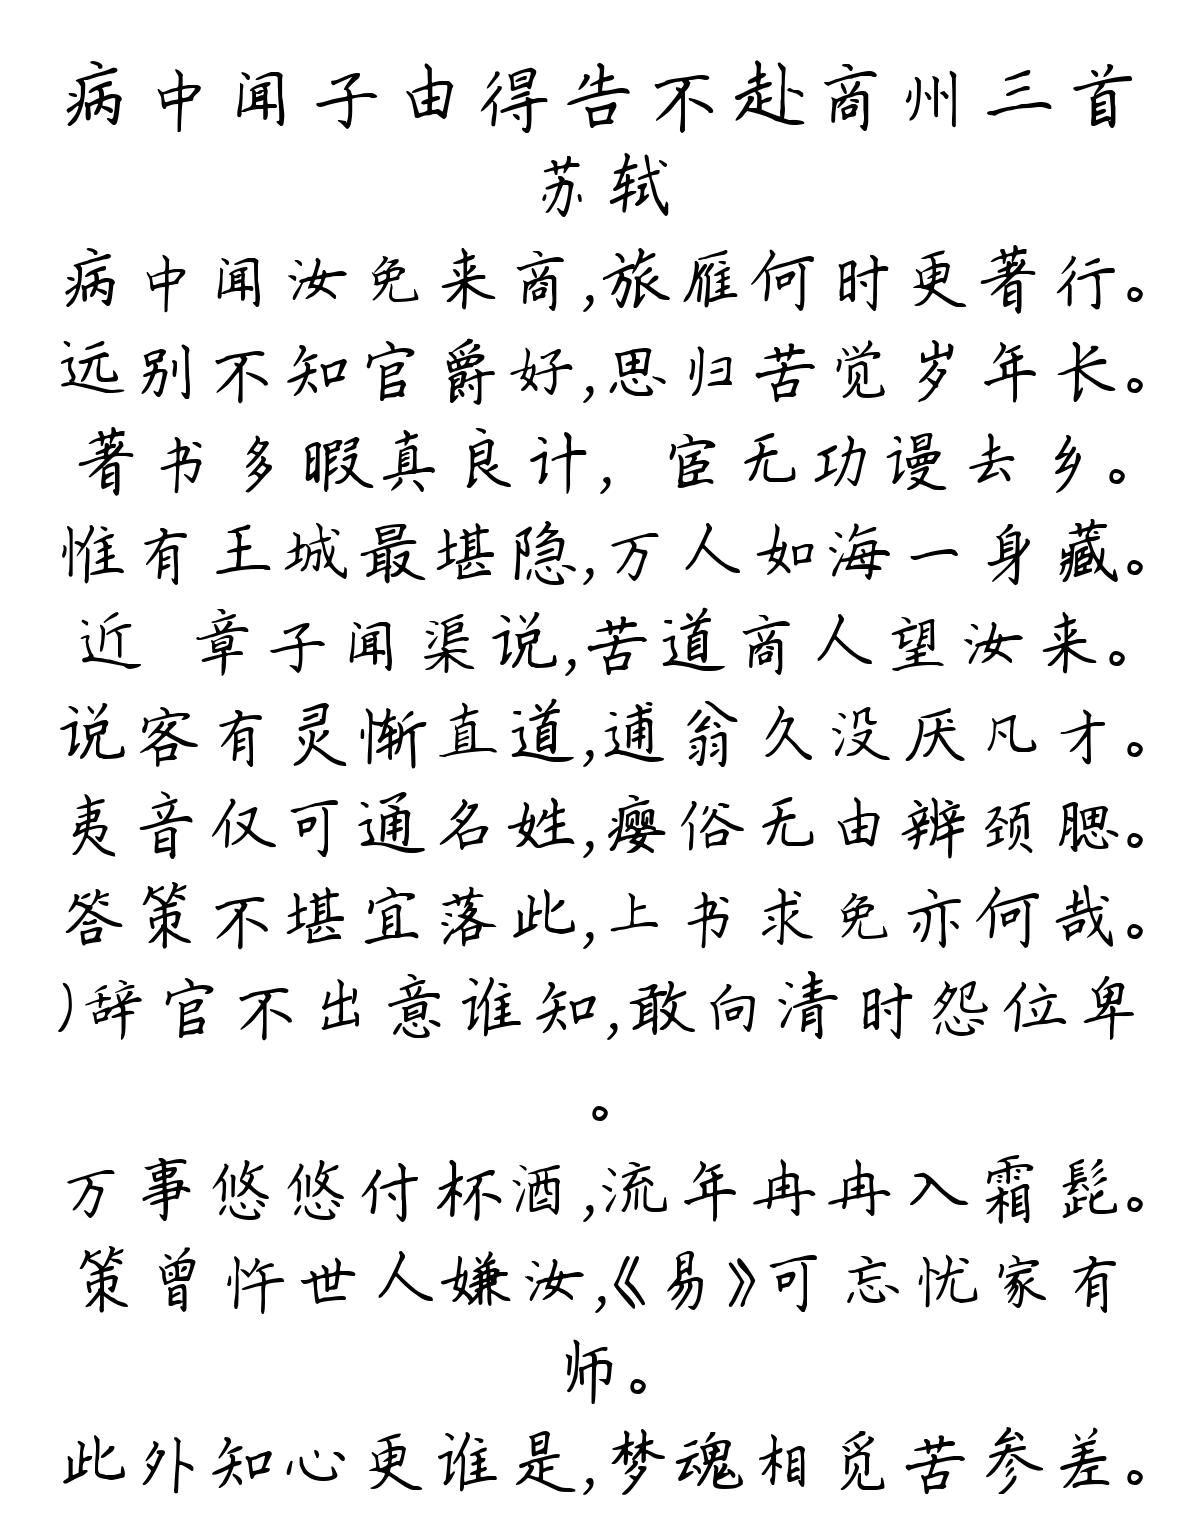 病中闻子由得告不赴商州三首
苏轼
病中闻汝免来商,旅雁何时更著行。
远别不知官爵好,思归苦觉岁年长。
著书多暇真良计, 宦无功谩去乡。
惟有王城最堪隐,万人如海一身藏。
近 章子闻渠说,苦道商人望汝来。
说客有灵惭直道,逋翁久没厌凡才。
夷音仅可通名姓,瘿俗无由辨颈腮。
答策不堪宜落此,上书求免亦何哉。
)辞官不出意谁知,敢向清时怨位卑
。
万事悠悠付杯酒,流年冉冉入霜髭。
策曾忤世人嫌汝,《易》可忘忧家有
师。
此外知心更谁是,梦魂相觅苦参差。